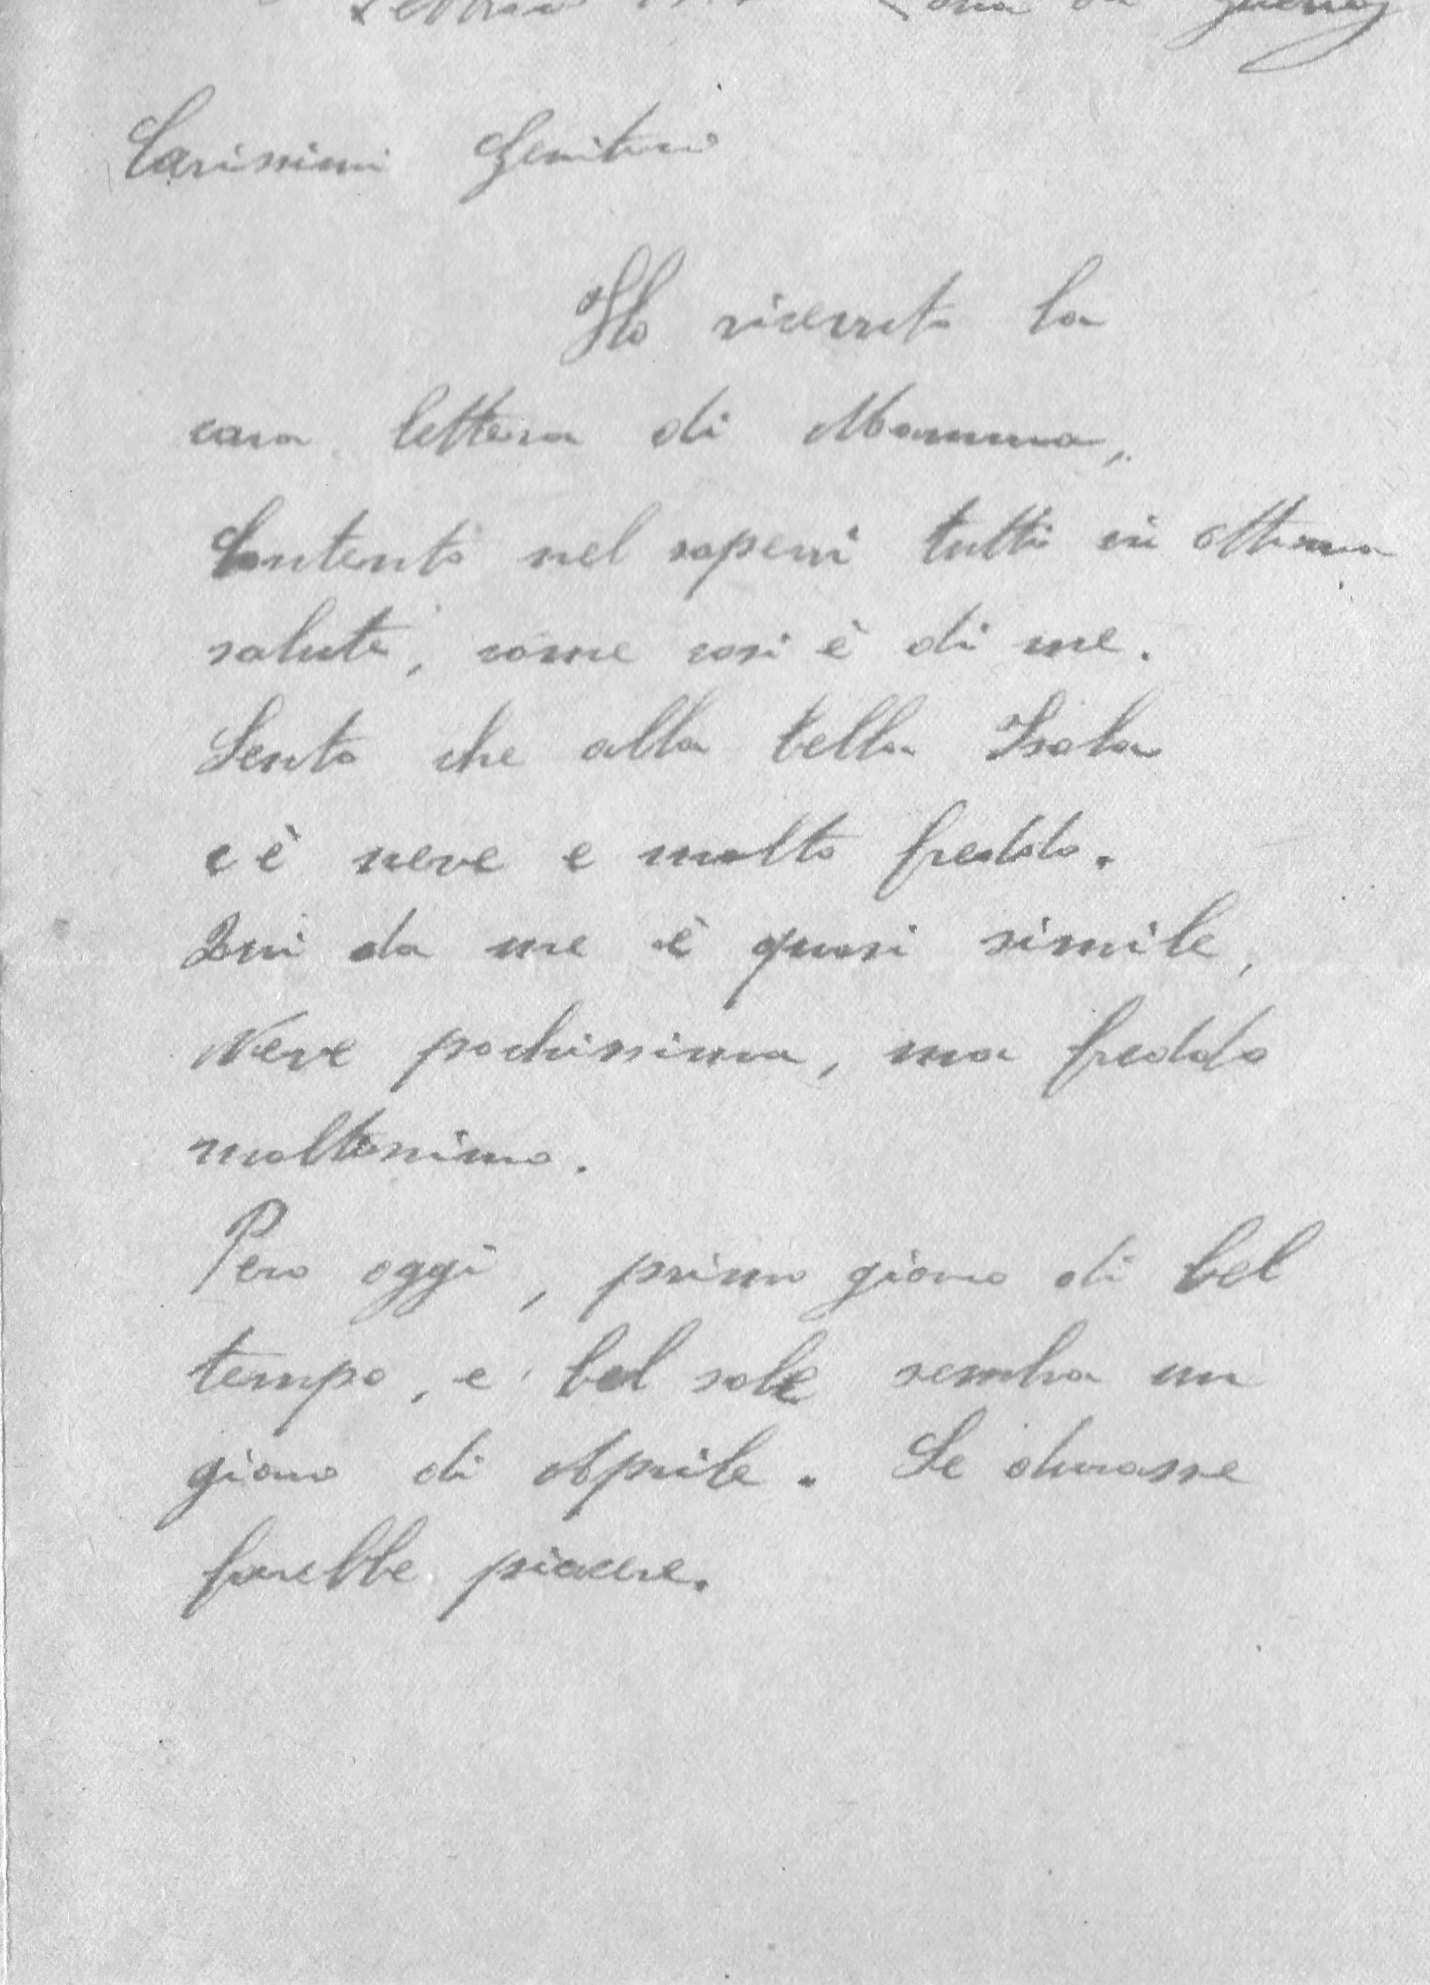 Febbraio Zona di guerra
Carissimi Genitori
Ho ricevuto la
cara lettera di Mamma,
Contento nel sapervi tutti in ottima
salute, come cosi è di me.
Sento che alla bella Isola
c è neve e molto freddo.
Qui da me è quasi simile,
Neve pochissima, ma freddo
moltissimo.
Pero oggi, primo giorno di bel
tempo, e bel sole sembra un
giorno di Aprile. Se durasse
farebbe piacere.